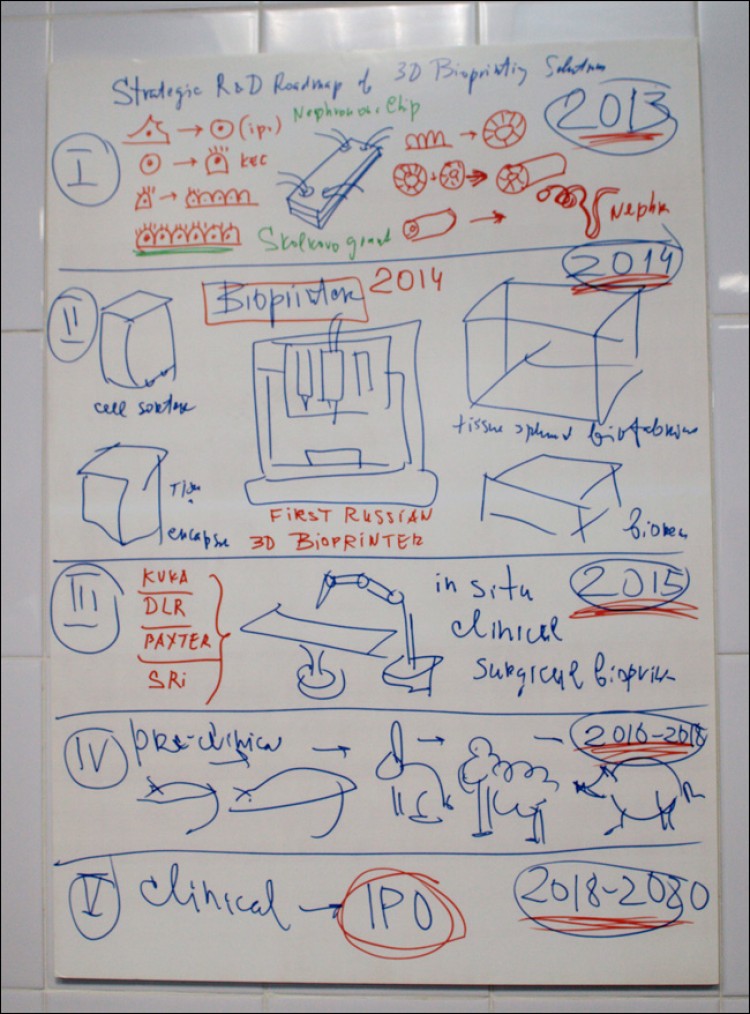 Strategic R&D Roadmap of 3D Bioprinting Solutions
2013
I
(ips)
Nephron on Chip
KEC
Skolkovo grant
Nephr
2014
II
Bioprinter 2014
cell sorter
tissue spheroid biofabrica
encapse
FIRST RUSSIAN
3D BIOPRINTER
III
KUKA
DLR
PAXTER
SRi
in situ
clinical
surgical bioprin
2015
IV
pre-clinical
2016-2018
V
clinical
IPO
2018-2030